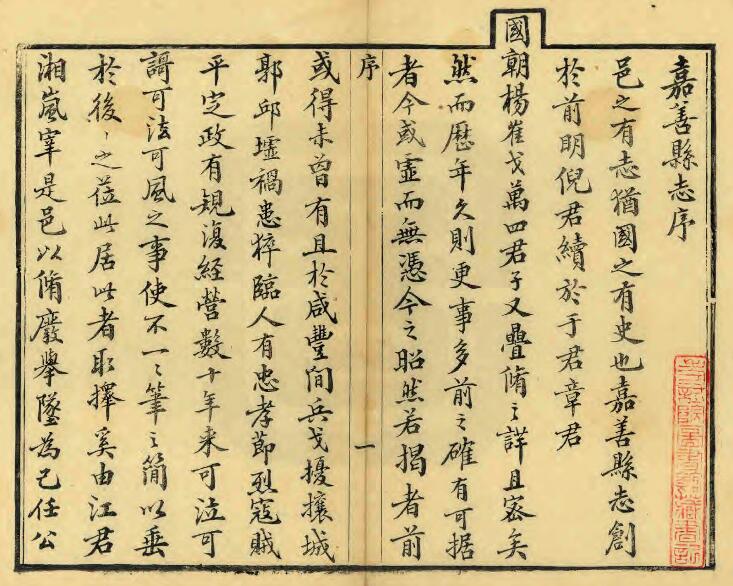 嘉善縣志序
邑之有志猶國之有史也嘉善縣志創
於前明倪君續於于君章君
國朝楊崔戈萬四君子又疊脩之詳且密矣
然而歷年久則更事多前之確有可據
者今或虛而無憑今之昭然若揭者前
序
一
或得未曾有且於咸豐間兵戈擾攘城
郭邱墟禍患猝臨人有忠孝節烈寇賊
平定政有規復經營數十年來可泣可
謌可法可風之事使不一一筆之簡以垂
於後後之莅此居此者取擇奚由江君
湘嵐宰是邑以脩廢舉墜為己任公